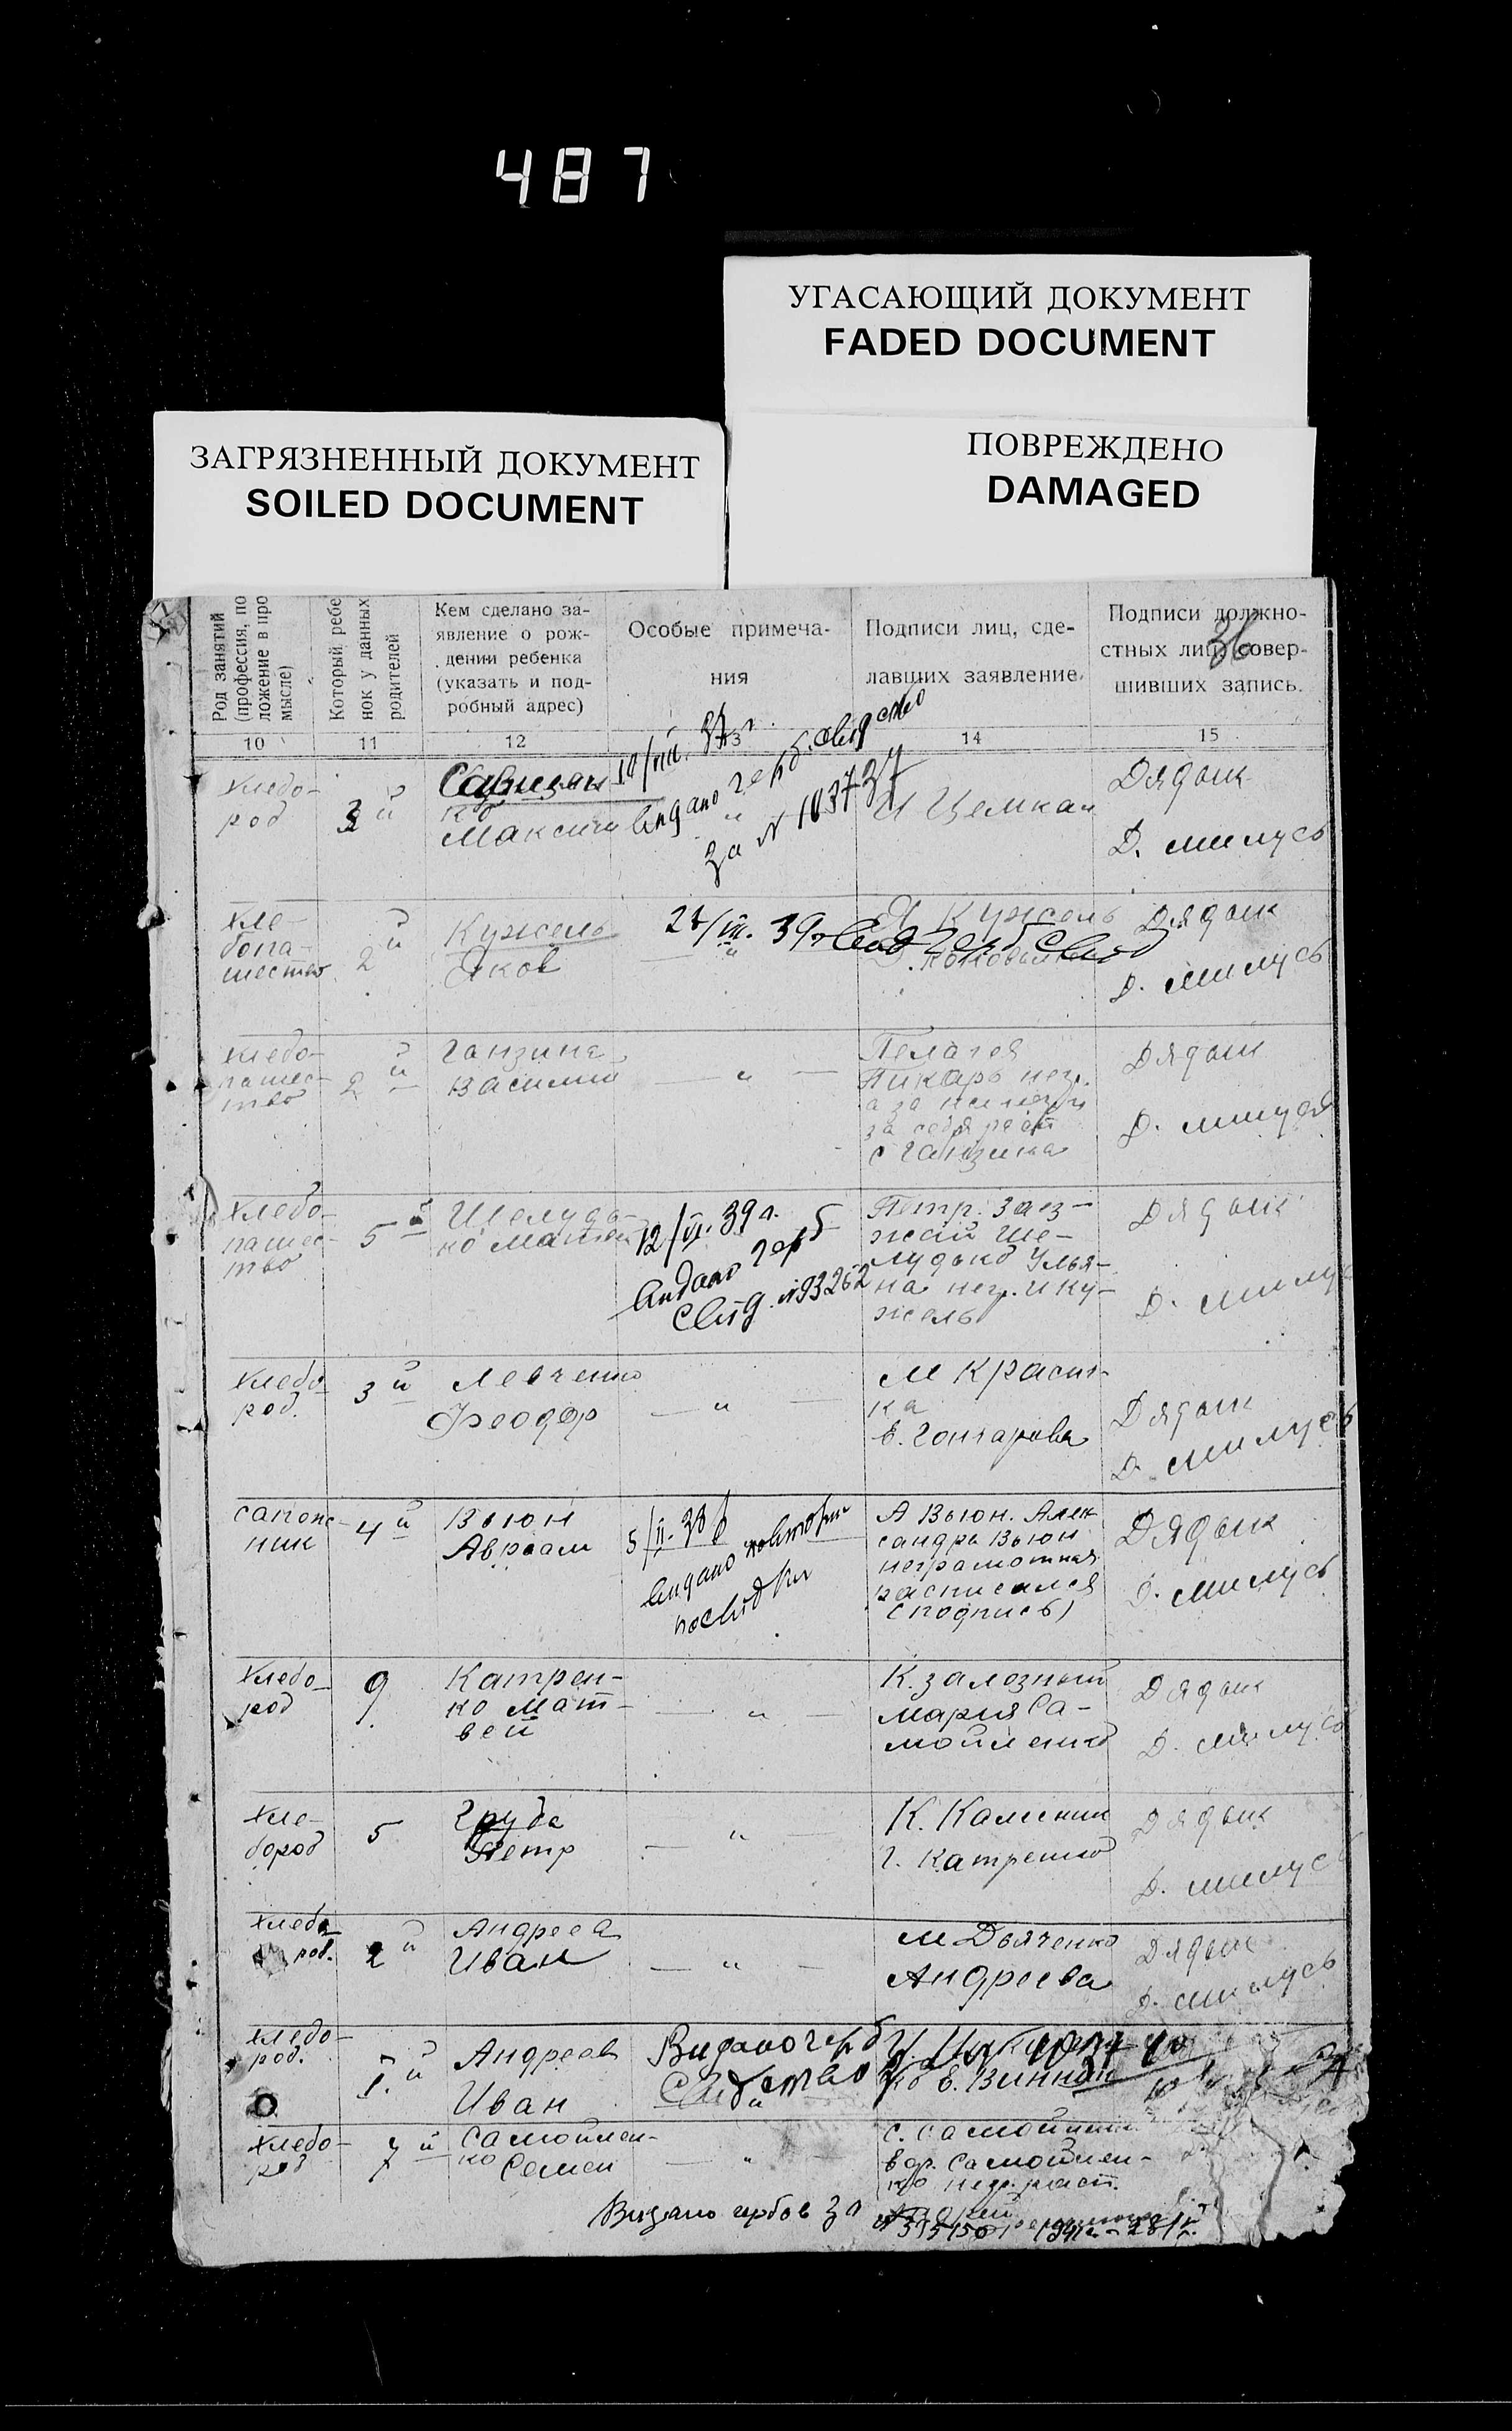 487
УГАСАЮЩИЙ ДОКУМЕНТ
FADED DOCUMENT
ЗАГРЯЗНЕННЫЙ ДОКУМЕНТ
SOILED DOCUMENT
ПОВРЕЖДЕНО
DAMAGED
Род занятий
(профессия, по
ложение в про
мысле)
Который ребе
нок у данных
родителей
Кем сделано за-
явление о рож-
дении ребенка
(указать и под-
робный адрес)
Особые примеча-
ния
Подписи лиц, сде-
лавших заявление.
Подписи должно-
стных лиц, совер-
шивших запись.
36
10
11
12
13
14
15
хлебо-
род
3 й
Максим
10/VIII. 37 г.
за N 103737
Дядык
Д. Милусь
хле-
бопа-
шество
2 й
Кужель
Яков
Я Кужель
Дядык
Д. Милусь
хлебо-
пашес-
тво
2 й
Ганзина
Василий
— " —
Пелагея
Пикарь нег.
за себя расп
С Ганзина
Дядык
Д. Милусь
хлебо-
пашес-
тво
5 й
Шелудь-
ко Матвей
12/VI. 39 г.
видано герб
свід. N 93262
Петр. Заез-
жий Ше-
лудько Улья-
на нег. и Ку-
жель
Дядык
Д. Милусь
хлебо-
род.
3 й
Левченко
Феодор
— " —
М Красни-
ка
Е. Гончарова
Дядык
Д. Милусь
сапож-
ник
4 й
Вьюн
Авраам
5/II. 38 р
видано повторни
посвідки
А Вьюн. Алек
сандра Вьюн
неграмотная
расписался
(подпись)
Дядык
Д. Милусь
хлебо-
род
9
Катрен-
ко Мат-
вей
— " —
К. Залозный
Мария Са-
мойленко
Дядык
Д. Милусь
хле-
бород
5
Груба
Петр
— " —
К. Калинин
Г. Катренко
Дядык
Д. Милусь
хлебо
род.
2 й
Андреев
Иван
— " —
М Дьяченко
Андреева
Дядык
Д. Милусь
хлебо-
род.
1. й
Андреев
Иван
Видано герб
Е. Винник
хлебо-
род
7 й
Самойлен-
ко Семен
— " —
С. Самойленко
Самойлен-
ко
Видано гербов за